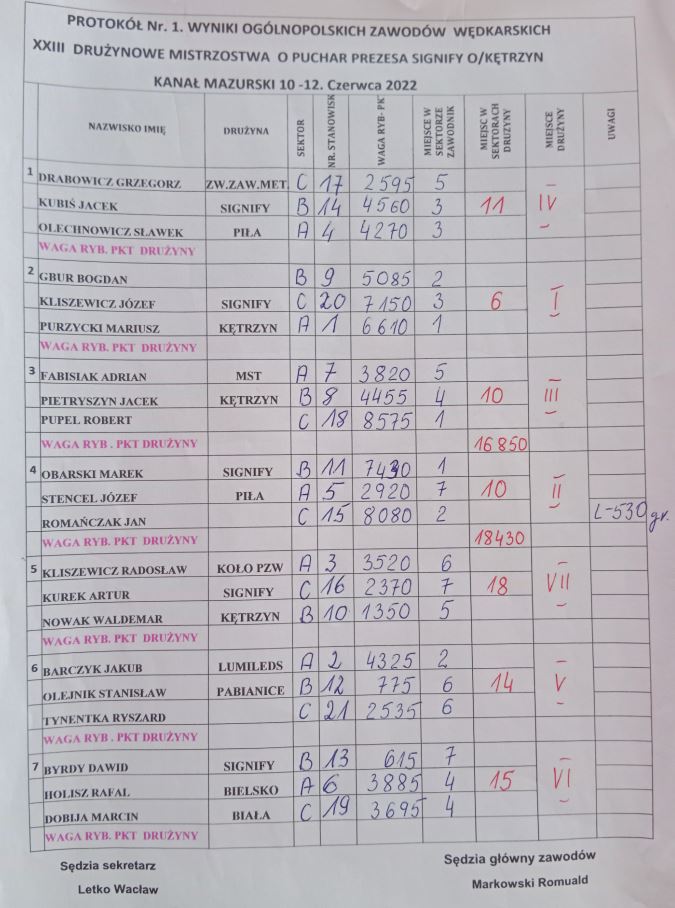 PROTOKÓŁ Nr. 1. WYNIKI OGÓLNOPOLSKICH ZAWODÓW WĘDKARSKICH
XXIII DRUŻYNOWE MISTRZOSTWA O PUCHAR PREZESA SIGNIFY O/KĘTRZYN
KANAŁ MAZURSKI 10 -12. Czerwca 2022
NAZWISKO IMIĘ DRUŻYNA SEKTOR NR. STANOWISK WAGA RYB- PK MIEJSCE W SEKTORZE ZAWODNIK MIEJSC W SEKTORACH DRUZYNY MIEJSCE DRUŻYNY UWAGI
1 DRABOWICZ GRZEGORZ ZW.ZAW.MET. C 17 2595 5
KUBIŚ JACEK SIGNIFY B 14 4560 3 11 IV
OLECHNOWICZ SŁAWEK PIŁA A 4 4270 3
WAGA RYB. PKT DRUŻYNY
2 GBUR BOGDAN B 9 5085 2
KLISZEWICZ JÓZEF SIGNIFY C 20 7150 3 6 I
PURZYCKI MARIUSZ KĘTRZYN A 1 6610 1
WAGA RYB. PKT DRUŻYNY
3 FABISIAK ADRIAN MST A 7 3820 5
PIETRYSZYN JACEK KĘTRZYN B 8 4455 4 10 III
PUPEL ROBERT C 18 8575 1
WAGA RYB . PKT DRUŻYNY 16850
4 OBARSKI MAREK SIGNIFY B 11 7430 1
STENCEL JÓZEF PIŁA A 5 2920 7 10 II
ROMAŃCZAK JAN C 15 8080 2 L-530 gr.
WAGA RYB . PKT DRUŻYNY 18430
5 KLISZEWICZ RADOSŁAW KOŁO PZW A 3 3520 6
KUREK ARTUR SIGNIFY C 16 2370 7 18 VII
NOWAK WALDEMAR KĘTRZYN B 10 1350 5
WAGA RYB . PKT DRUŻYNY
6 BARCZYK JAKUB LUMILEDS A 2 4325 2
OLEJNIK STANISŁAW PABIANICE B 12 775 6 14 V
TYNENTKA RYSZARD C 21 2535 6
WAGA RYB . PKT DRUŻYNY
7 BYRDY DAWID SIGNIFY B 13 615 7
HOLISZ RAFAŁ BIELSKO A 6 3885 4 15 VI
DOBIJA MARCIN BIAŁA C 19 3695 4
WAGA RYB . PKT DRUŻYNY
Sędzia sekretarz Sędzia główny zawodów
Letko Wacław Markowski Romuald